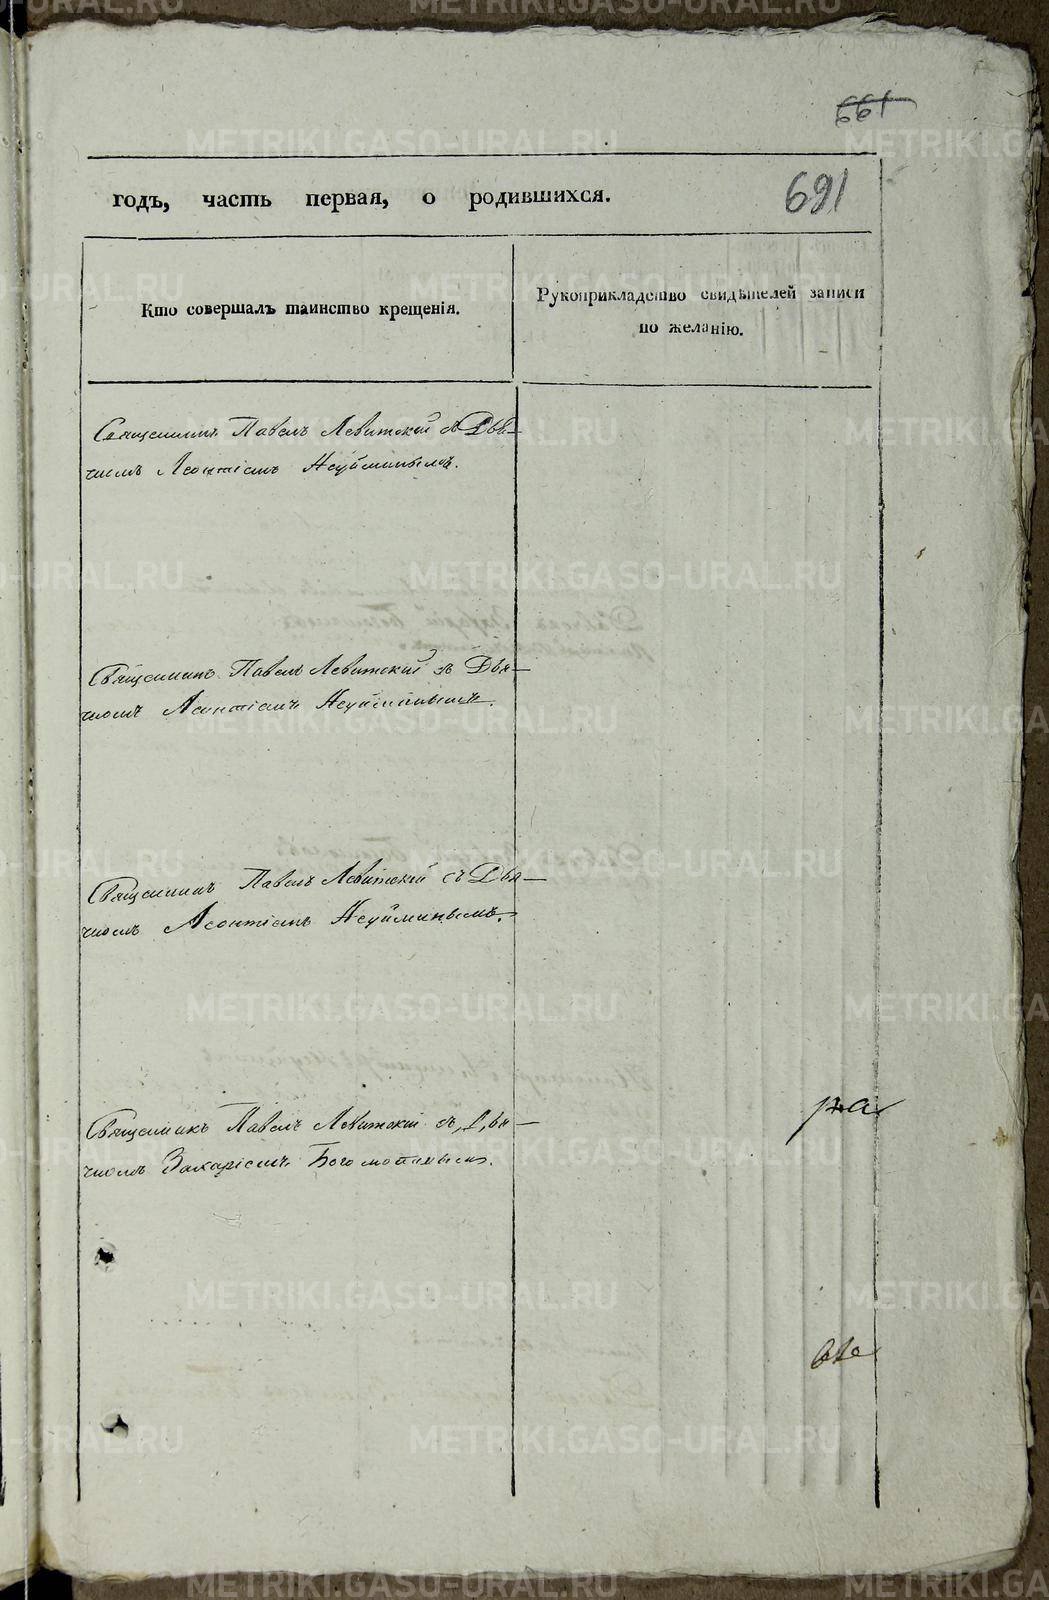 661
691
годъ, часть первая, о родившихся.
Кто совершалъ таинство крещенія.
Рукоприкладство свидѣтелей записи
по желанію.
Священникъ Павелъ Левитскій съ Дья-
чкомъ Леонтіемъ Неуйминымъ.
Священникъ Павелъ Левитскій съ Дья-
чкомъ Леонтіемъ Неуйминымъ.
Священникъ Павелъ Левитскій съ Дья-
чкомъ Леонтіемъ Неуйминымъ.
Священникъ Павелъ Левитскій съ Дья-
чкомъ Захаріемъ Богомоловымъ.
METRIKI.GASO-URAL.RU